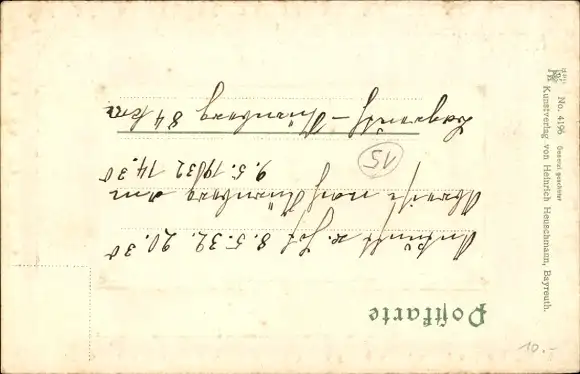 Postkarte
Ankunft z. Hof 8.5.32. 20.30
Abreise nach Nürnberg am
9.5.1932 14.30
15
Bayreuth – Nürnberg 84 km
No. 4196 Gesetzl. geschützt
Kunstverlag von Heinrich Heuschmann, Bayreuth.
10.-